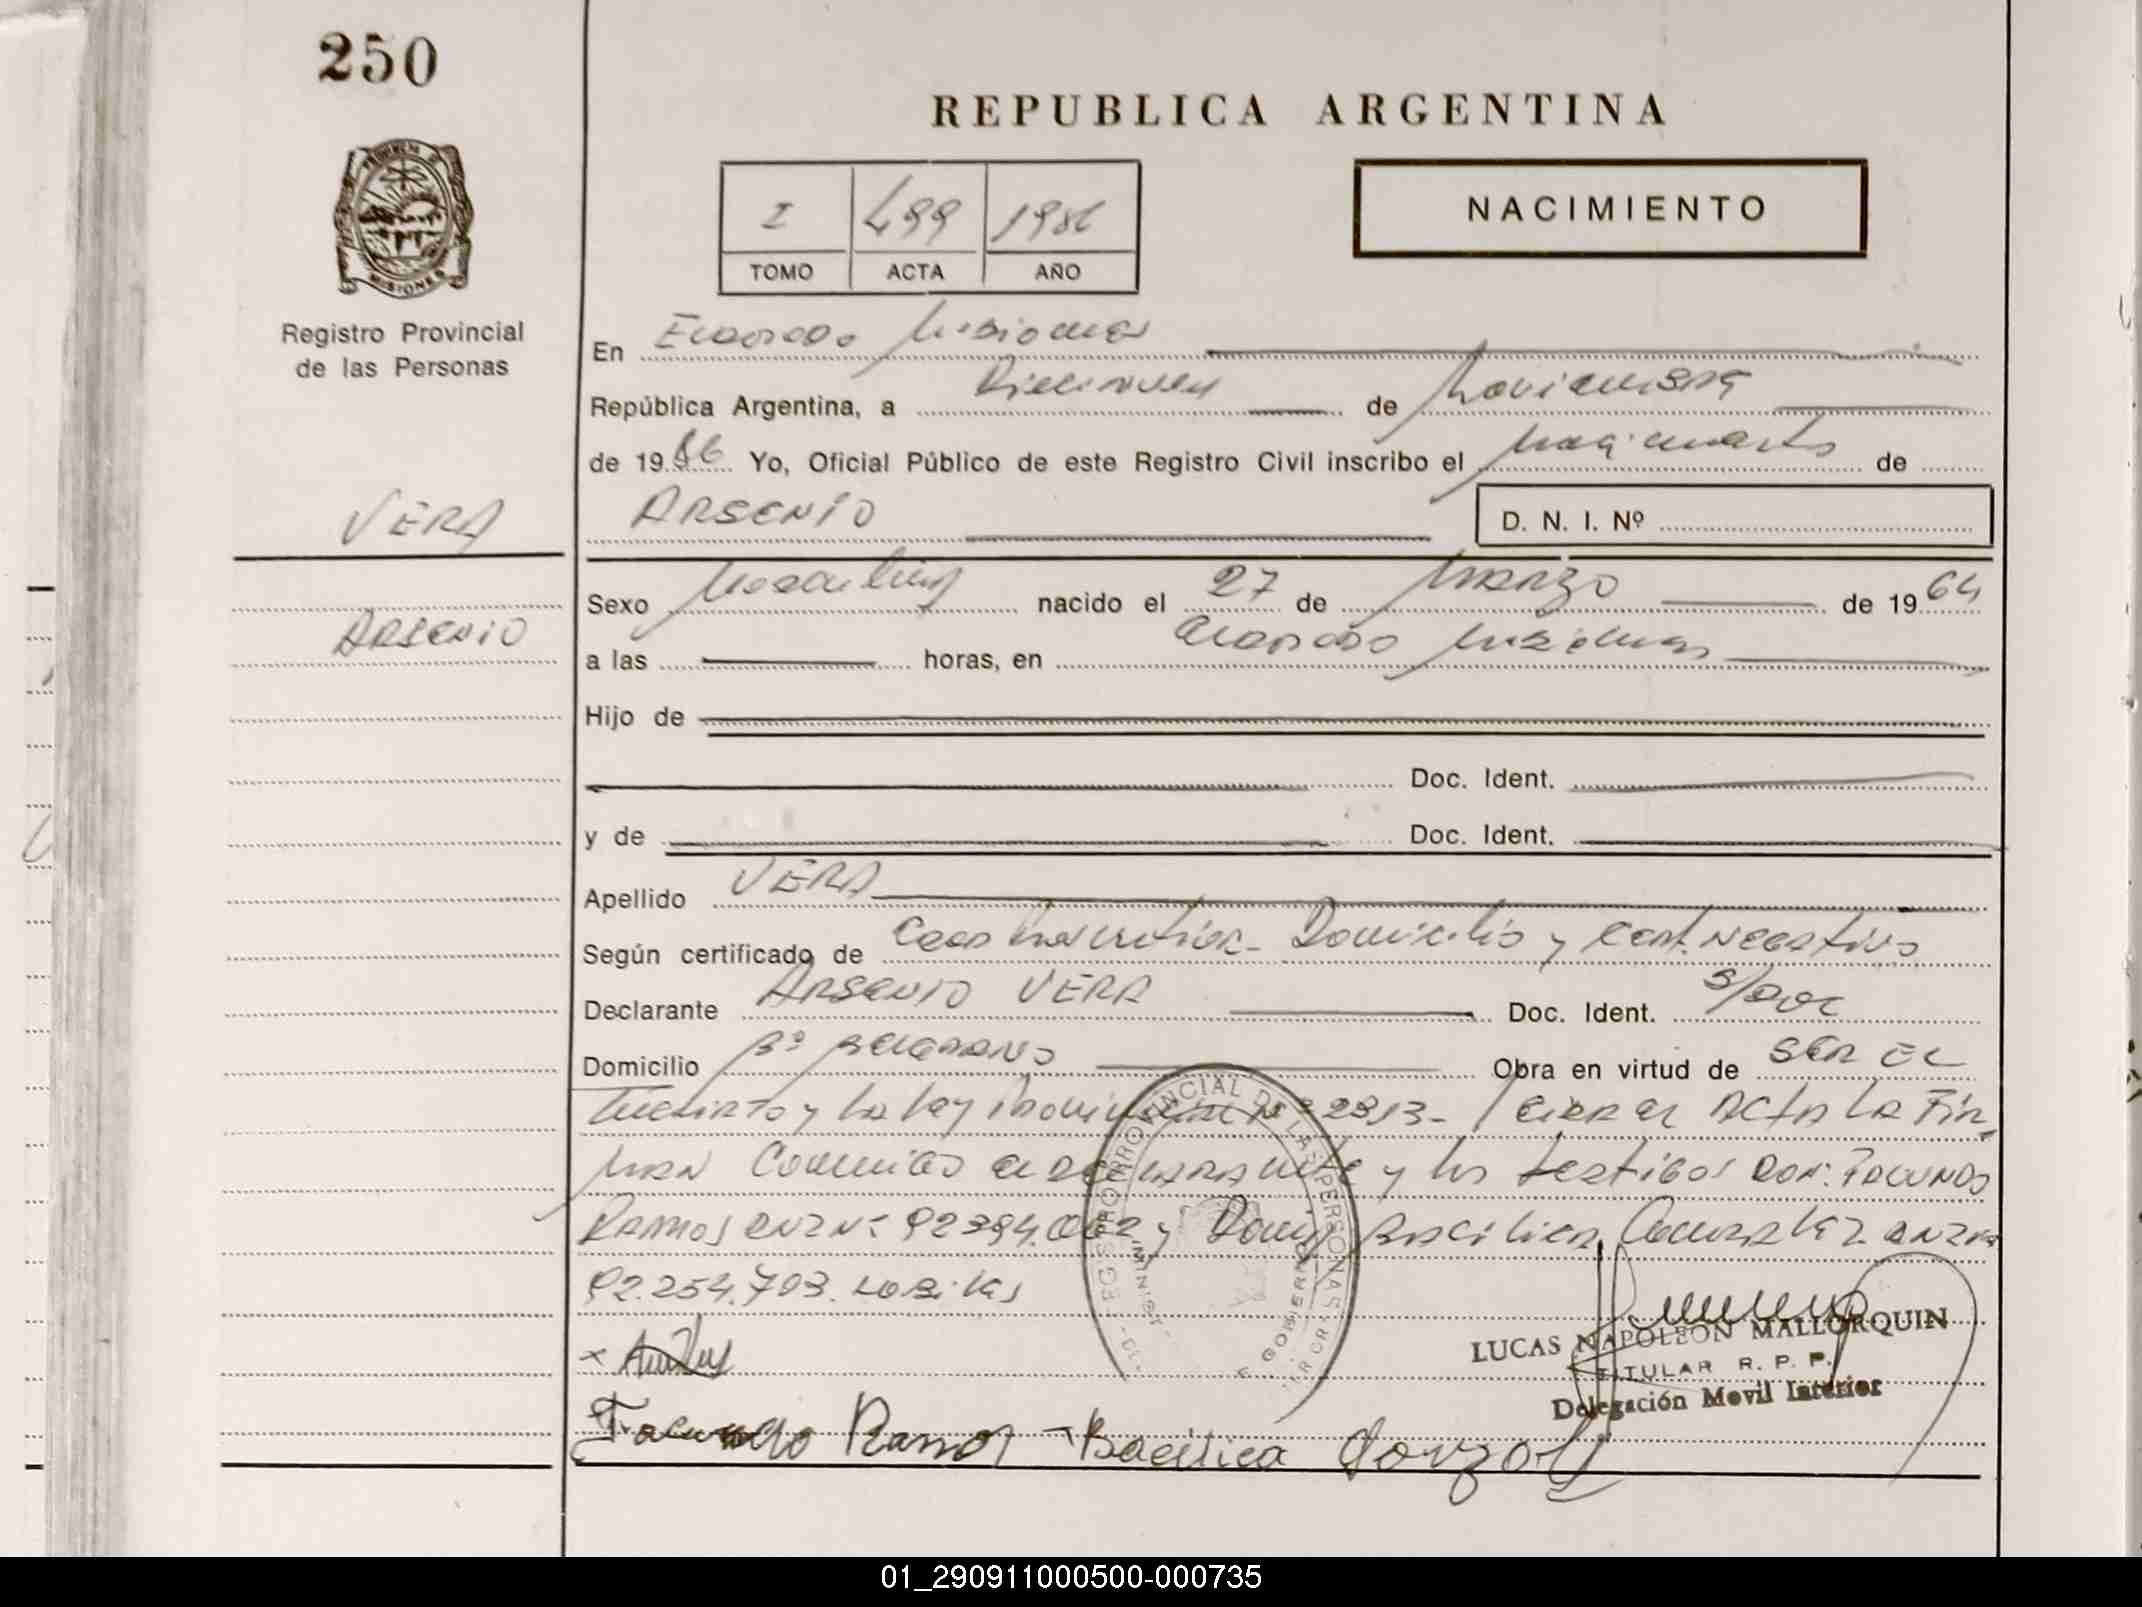 250
REPUBLICA ARGENTINA
NACIMIENTO
I 499 1986
TOMO ACTA AÑO
Registro Provincial
de las Personas
En Eldorado Misiones
República Argentina, a Diecinueve de Noviembre
de 1986 Yo, Oficial Público de este Registro Civil inscribo el Nacimiento de
VERA
ARSENIO
D. N. I. Nº
Sexo Masculino nacido el 27 de Marzo de 1964
ARSENIO
a las horas, en Eldorado Misiones
Hijo de
Doc. Ident.
y de Doc. Ident.
Apellido VERA
Según certificado de Domicilio y Cert. Negativo
Declarante ARSENIO VERA Doc. Ident. S/Doc
Domicilio Bº BELGRANO Obra en virtud de SER EL
y la Ley Provincial Nº 2313- ACTA LA FIR
MAN Conmigo el DECLARANTE y los testigos DON: FACUNDO
RAMOS DNI Nº 92394.002 y Doña BACILICA Gonzalez DNI Nº
92.254.703.
REGISTRO PROVINCIAL DE LAS PERSONAS
GOBIERNO
LUCAS NAPOLEON MALLORQUIN
TITULAR R. P. P.
Delegación Movil Interior
Facundo Ramos - Bacilica Gonzalez
01_290911000500-000735